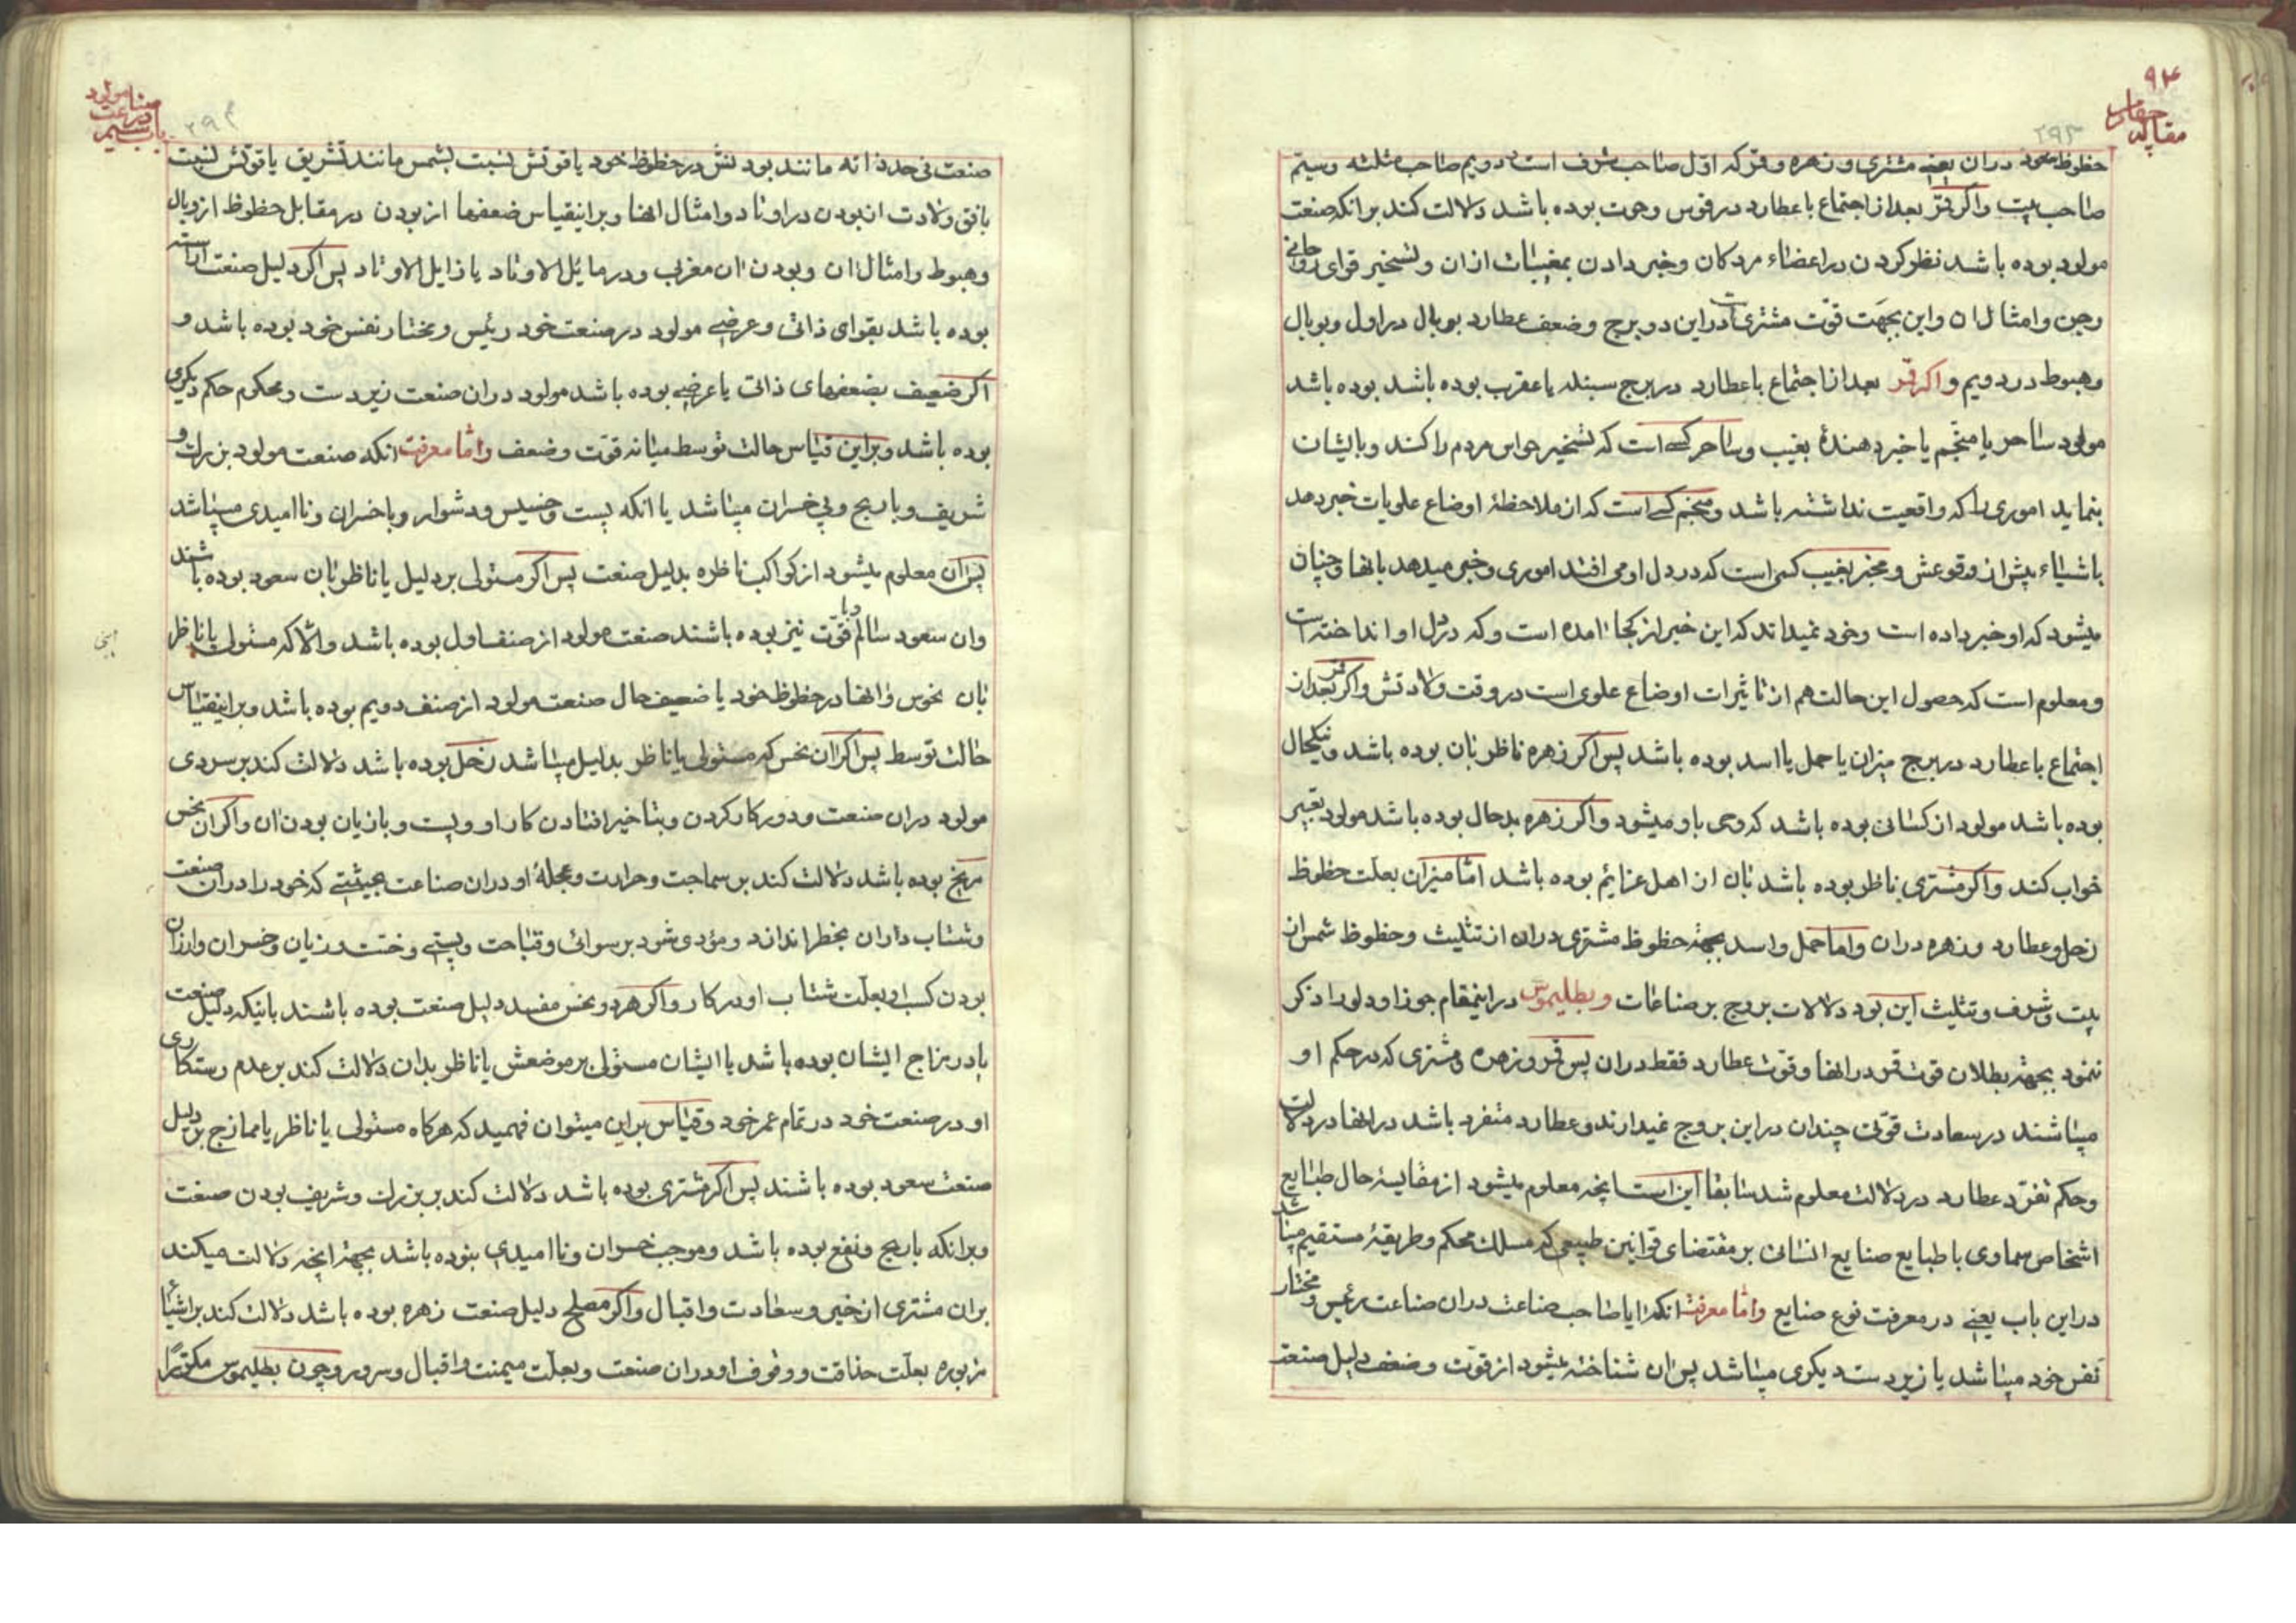 ۹۴
مقاله چهارم
۲۹۳
حظوظ سعود دران یعنی مشتری و زهره و قمر که اول صاحب شرف است و دویم صاحب مثلثه و سیم
صاحب بیت و اکر قمر بعد از اجتماع با عطارد در قوس و حوت بوده باشد دلالت کند برانکه صنعت
مولود بوده باشد نظر کردن در اعضاء مردکان و خبر دادن بمغیبات ازان و تسخیر قوای روحانی
و جن و امثال ان و این بجهت قوت مشتریست دراین دو برج و ضعف عطارد بوبال در اول و وبال
و هبوط در دویم و اکر قمر بعد از اجتماع با عطارد در برج سنبله یا عقرب بوده باشد بوده باشد
مولود ساحر یا منجم یا خبر دهندهٔ بغیب و ساحر کسی است که تسخیر حواس مردم را کند و بایشان
بنماید اموری را که واقعیت نداشته باشد و منجم کسی است که از ملاحظهٔ اوضاع علویات خبر دهد
باشیاء پیش از وقوعش و مخبر بغیب کسی است که در دل او می افتد اموری و خبر میدهد بانها و چنان
میشود که او خبر داده است و خود نمیداند که این خبر از کجا امده است و که در دل او انداخته است
و معلوم است که حصول این حالت هم از تاثیرات اوضاع علوی است در وقت ولادتش و اکر قمر بعد از
اجتماع با عطارد در برج میزان یا حمل یا اسد بوده باشد پس اکر زهره ناظر بان بوده باشد و نیکحال
بوده باشد مولود از کسانی بوده باشد که وحی باو میشود و اکر زهره بدحال بوده باشد مولود تعبیر
خواب کند و اکر مشتری ناظر بوده باشد بان از اهل عزایم بوده باشد اما میزان بعلت حظوظ
زحل و عطارد و زهره دران و اما حمل و اسد بجهة حظوظ مشتری دران از تثلیث و حظوظ شمس از
بیت و شرف و تثلیث این بود دلالات بروج بر صناعات و بطلیموس دراینمقام جوزا و دلو را ذکر
ننمود بجهة بطلان قوت قمر در انها و قوت عطارد فقط دران پس قمر و زهره و مشتری که در حکم او
میباشند در سعادت قوتی چندان دراین بروج نمیدارند و عطارد منفرد باشد در انها در دلالت
و حکم تفرد عطارد در دلالت معلوم شد سابقا این است انچه معلوم میشود از مقایسهٔ حال طبایع
اشخاص سماوی با طبایع صنایع انسانی بر مقتضای قوانین طبیعی که مسلک محکم و طریقهٔ مستقیم میباشد
دراین باب یعنی در معرفت نوع صنایع و اما معرفت انکه ایا صاحب صناعت دران صناعت رئیس و مختار
نفس خود میباشد یا زیردست دیکری میباشد پس ان شناخته میشود از قوت و ضعف دلیل صنعت
باب سیم در صناعت مولود
۲۹۴
صنعت فی حد ذاته مانند بودنش در حظوظ خود یا قوتش نسبت بشمس مانند تشریق یا قوتش نسبت
بافق ولادت از بودن در اوتاد و امثال انها و براینقیاس ضعفها از بودن در مقابل حظوظ از وبال
و هبوط و امثال ان و بودن ان مغربی و در مایل الاوتاد یا زایل الاوتاد پس اکر دلیل صنعت اراسته
بوده باشد بقوای ذاتی و عرضی مولود در صنعت خود رئیس و مختار نفس خود بوده باشد و
اکر ضعیف بضعفهای ذاتی یا عرضی بوده باشد مولود دران صنعت زیردست و محکوم حکم دیکری
بوده باشد و براین قیاس حالت توسط میانه قوت و ضعف و اما معرفت انکه صنعت مولود بزرک و
شریف و با ربح و بی خسران میباشد یا انکه پست و خسیس و دشوار و با خسران و ناامیدی میباشد
پس ان معلوم میشود از کواکب ناظره بدلیل صنعت پس اکر مستولی بر دلیل یا ناظر بان سعود بوده باشند
وان سعود سالم و با قوت نیز بوده باشند صنعت مولود از صنف اول بوده باشد و الا که مستولی یا ناظر
بان نحوس و انها در حظوظ خود یا ضعیف حال صنعت مولود از صنف دویم بوده باشد و براینقیاس
حالت توسط پس اکر ان نحس که مستولی یا ناظر بدلیل میباشد زحل بوده باشد دلالت کند بر سردی
مولود دران صنعت و دور کار کردن و بتاخیر افتادن کار او و پست و بازیان بودن ان و اکر ان نحس
مریخ بوده باشد دلالت کند بر سماجت و حرارت و عجلهٔ او دران صناعت بحیثیتی که خود را دران صنعت
و شتاب داران بخطر اندازد و مؤدی شود برسوائی و قباحت و پستی و خست و زیان و خسران و ارزان
بودن کسب او بعلت شتاب او در کار و اکر هر دو نحس مفسد دلیل صنعت بوده باشند بانیکه دلیل صنعت
یا در مزاج ایشان بوده باشد یا ایشان مستولی بر موضعش یا ناظر بدان دلالت کند بر عدم رستکاری
او در صنعت خود در تمام عمر خود و قیاس براین میتوان فهمید که هرکاه مستولی یا ناظر یا ممازج بر دلیل
صنعت سعود بوده باشند پس اکر مشتری بوده باشد دلالت کند بر بزرک و شریف بودن صنعت
و برانکه با ربح و نفع بوده باشد و موجب خسران و ناامیدی نبوده باشد بجهة انچه دلالت میکند
بران مشتری از خیر و سعادت و اقبال و اکر مصلح دلیل صنعت زهره بوده باشد دلالت کند بر اشیا
مزبوره بعلت حذاقت و وقوف او دران صنعت و بعلت میمنت و اقبال و سرور و چون بطلیموس مکرراً